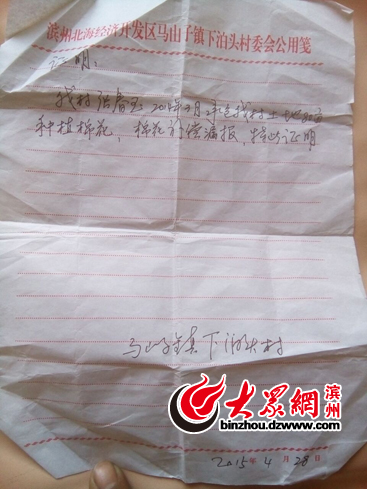 滨州北海经济开发区马山子镇下泊头村委会公用笺
证明:
我村张春玉 2014年 月承包我村土地
种植棉花, 棉花补偿漏报, 特此证明
马山子镇下泊头村
大众網 滨州
binzhou.dzwww.com
2015年4月28日